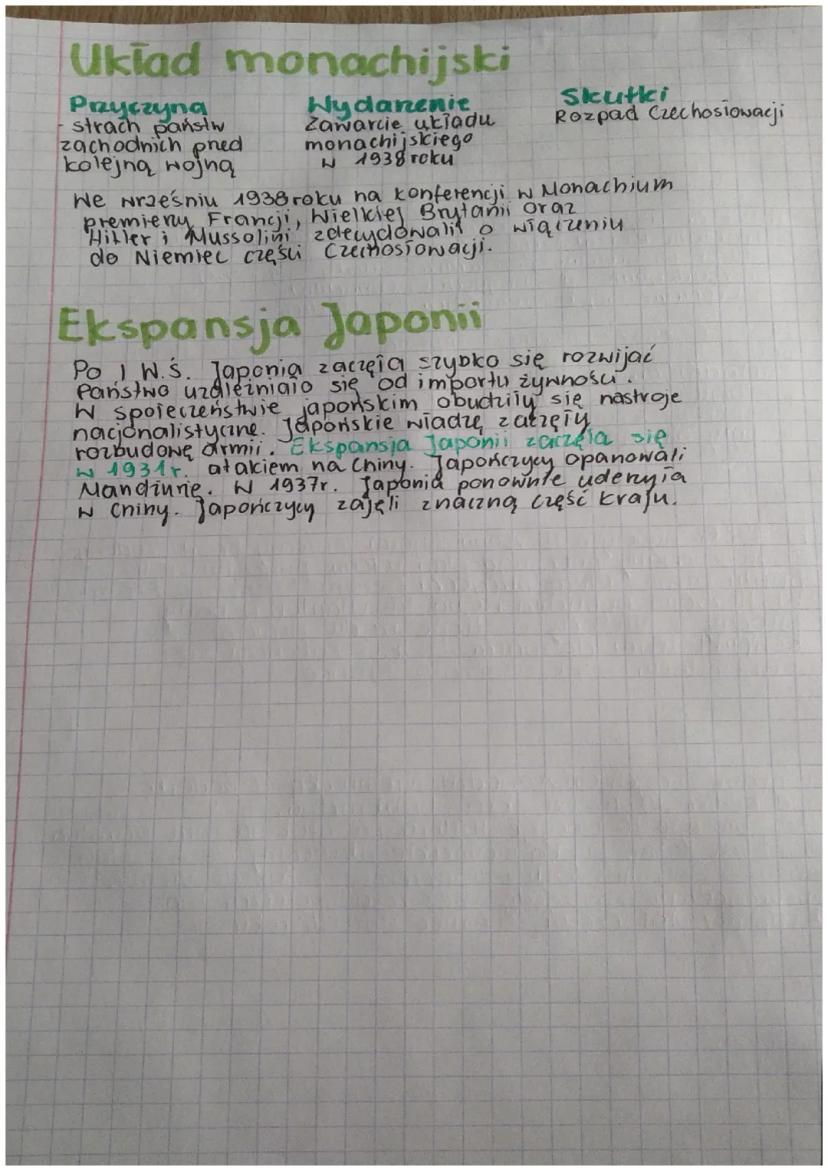 Układ monachijski
Przyczyna
- strach państw
zachodnich przed
kolejną wojną
Wydarzenie
Zawarcie układu
monachijskiego
w 1938 roku
Skutki
Rozpad Czechosłowacji
We wrześniu 1938 roku na konferencji w Monachium
premierzy Francji, Wielkiej Brytanii oraz
Hitler i Mussolini zdecydowali o włączeniu
do Niemiec części Czechosłowacji.
Ekspansja Japonii
Po I W.Ś. Japonia zaczęła szybko się rozwijać
Państwo uzależniało się od importu żywności.
W społeczeństwie japońskim obudziły się nastroje
nacjonalistyczne. Japońskie władze zaczęły
rozbudowę armii. Ekspansja Japonii zaczęła się
w 1931r. atakiem na Chiny. Japończycy opanowali
Mandżurię. W 1937r. Japonia ponownie uderzyła
w Chiny. Japończycy zajęli znaczną część kraju.